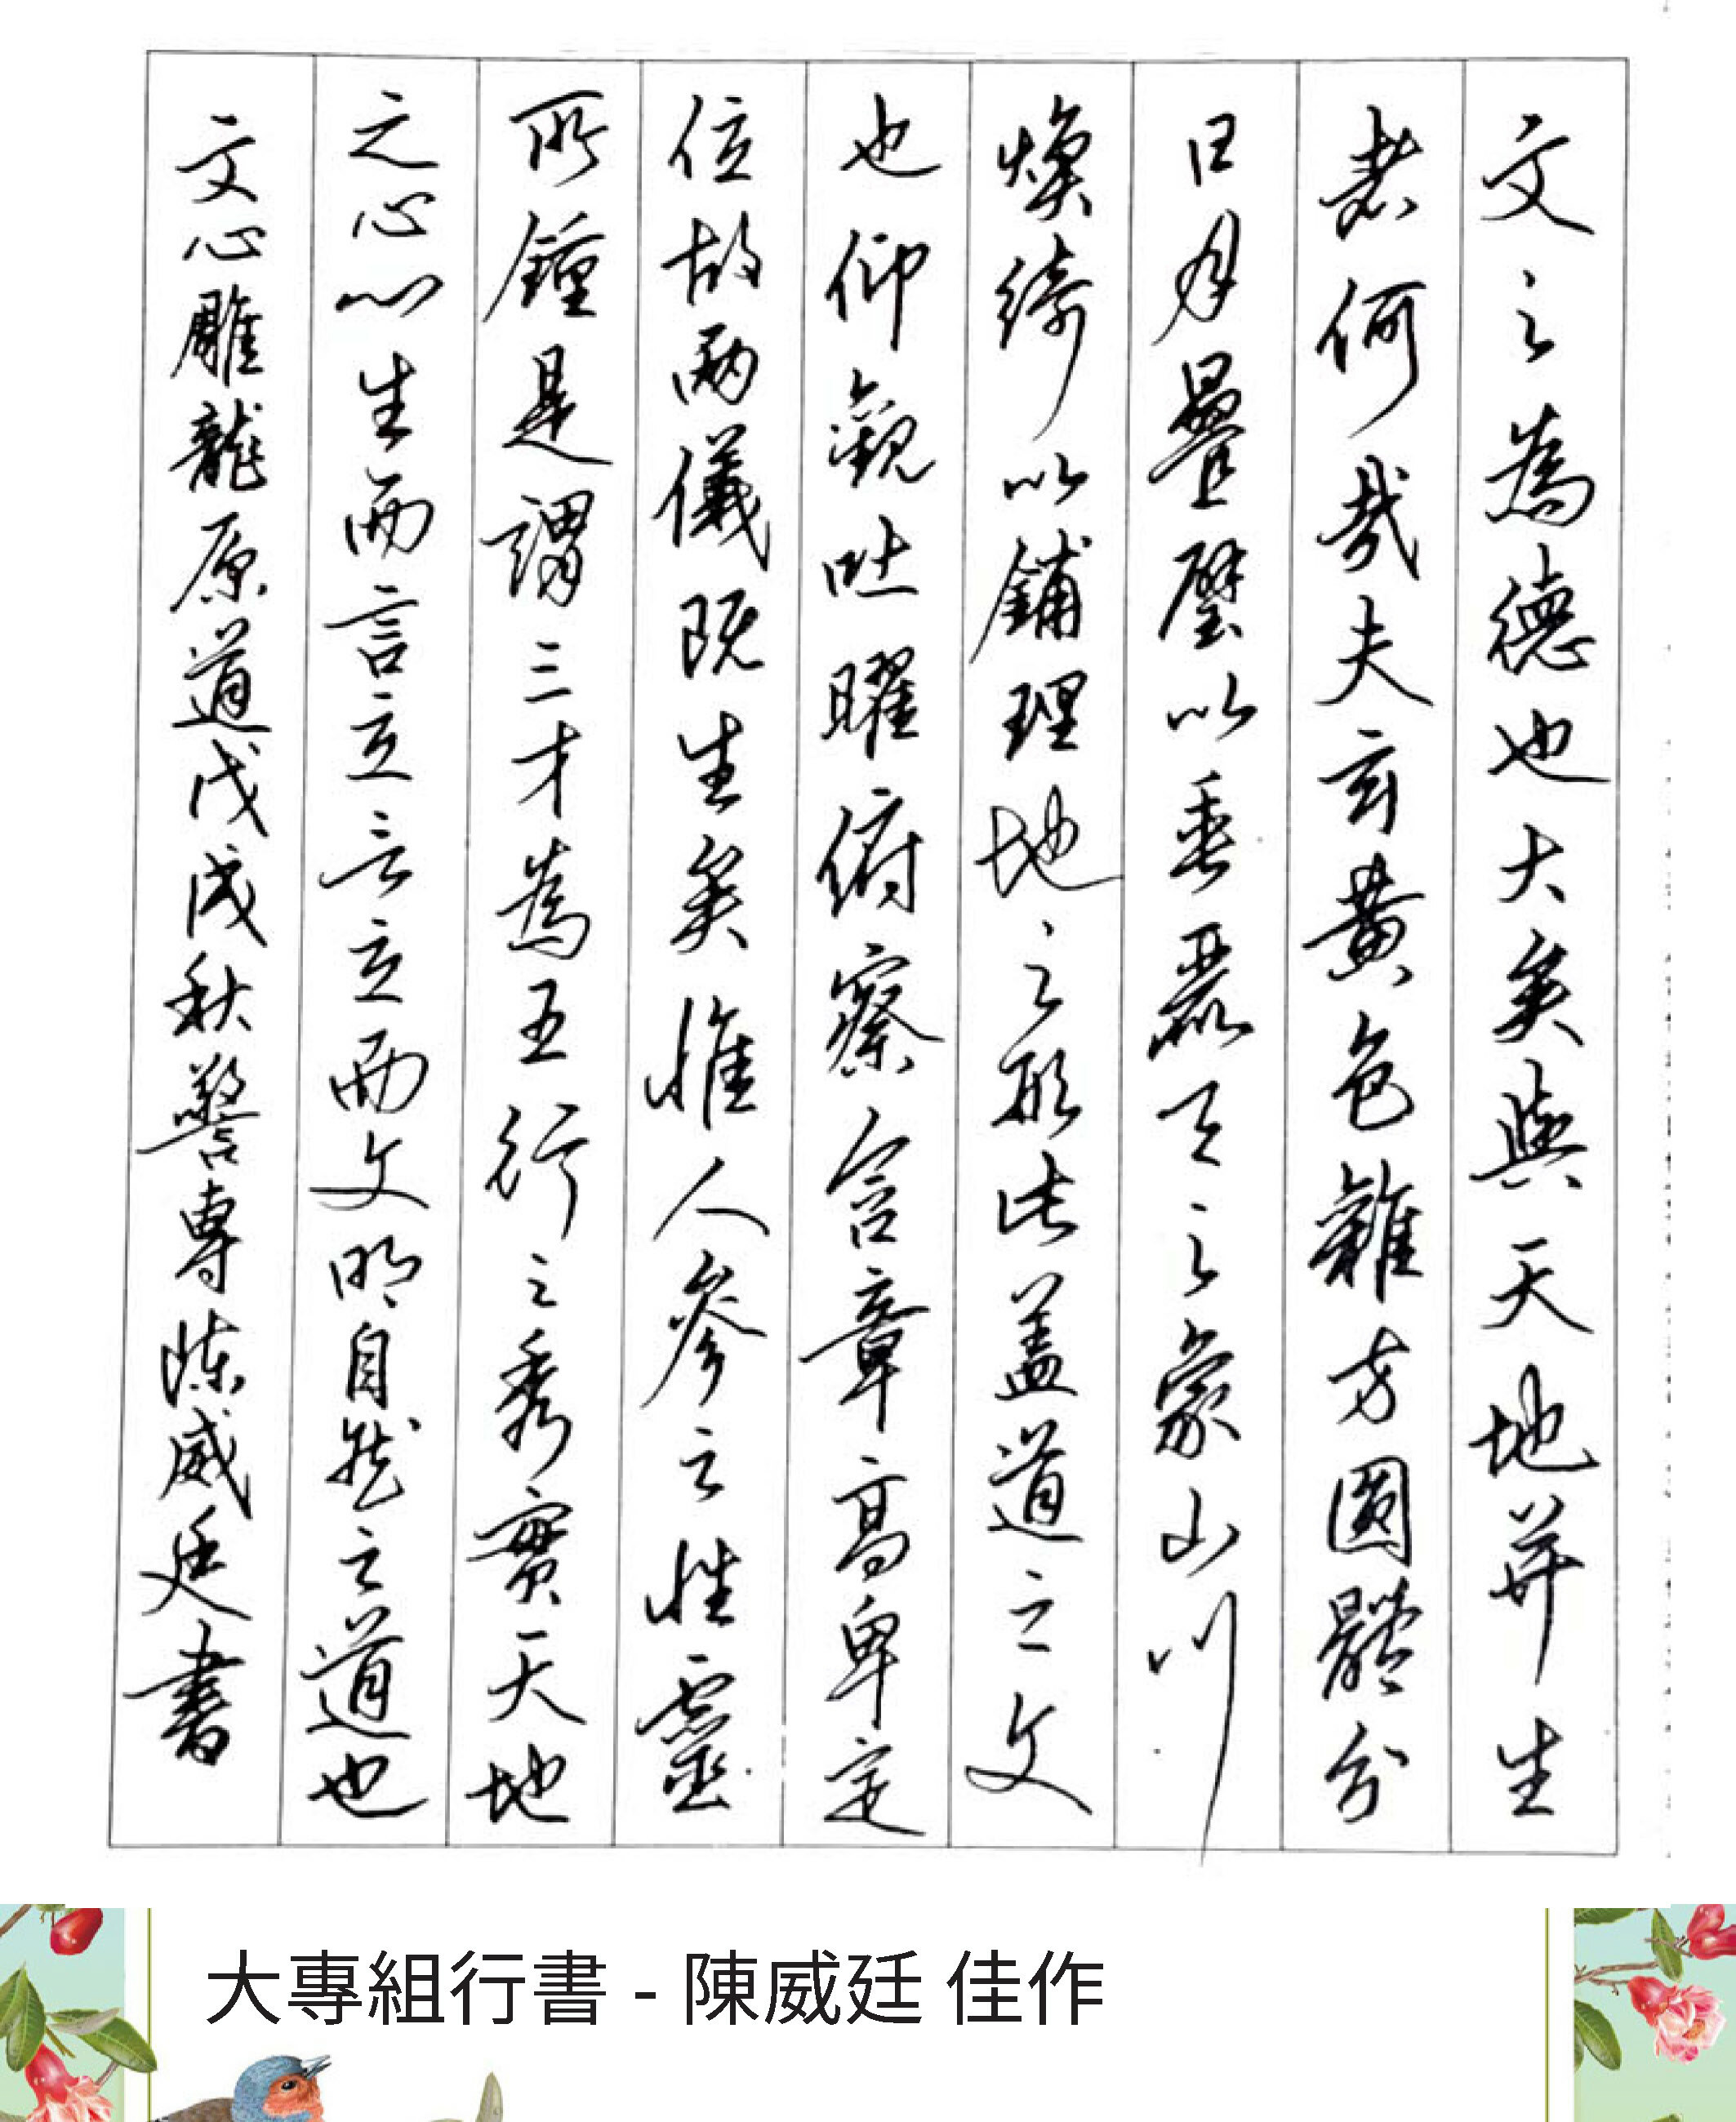 文之為德也大矣與天地并生
者何哉夫玄黃色雜方圓體分
日月疊璧以垂麗天之象山川
煥綺以鋪理地之形此蓋道之文
也仰觀吐曜俯察含章高卑定
位故兩儀既生矣惟人參之性靈
所鍾是謂三才為五行之秀實天地
之心心生而言立言立而文明自然之道也
文心雕龍原道戊戌秋警專陳威廷書
大專組行書 - 陳威廷 佳作